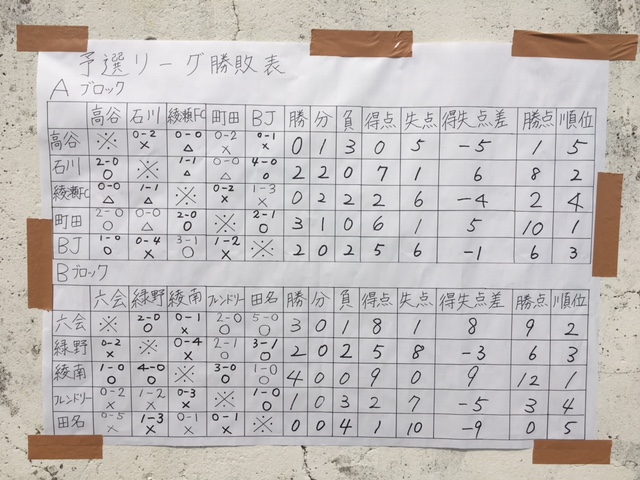 予選リーグ勝敗表
Aブロック
高谷 石川 綾瀬FC 町田 BJ 勝 分 負 得点 失点 得失点差 勝点 順位
高谷 ※ 0-2 × 0-0 △ 0-2 × 0-1 × 0 1 3 0 5 -5 1 5
石川 2-0 ○ ※ 1-1 △ 0-0 △ 4-0 ○ 2 2 0 7 1 6 8 2
綾瀬FC 0-0 △ 1-1 △ ※ 0-2 × 1-3 × 0 2 2 2 6 -4 2 4
町田 2-0 ○ 0-0 △ 2-0 ○ ※ 2-1 ○ 3 1 0 6 1 5 10 1
BJ 1-0 ○ 0-4 × 3-1 ○ 1-2 × ※ 2 0 2 5 6 -1 6 3
Bブロック
六会 緑野 綾南 フレンドリー 田名 勝 分 負 得点 失点 得失点差 勝点 順位
六会 ※ 2-0 ○ 0-1 × 2-0 ○ 5-0 ○ 3 0 1 8 1 8 9 2
緑野 0-2 × ※ 0-4 × 2-1 ○ 3-1 ○ 2 0 2 5 8 -3 6 3
綾南 1-0 ○ 4-0 ○ ※ 3-0 ○ 1-0 ○ 4 0 0 9 0 9 12 1
フレンドリー 0-2 × 1-2 × 0-3 × ※ 1-0 ○ 1 0 3 2 7 -5 3 4
田名 0-5 × 1-3 × 0-1 × 0-1 × ※ 0 0 4 1 10 -9 0 5